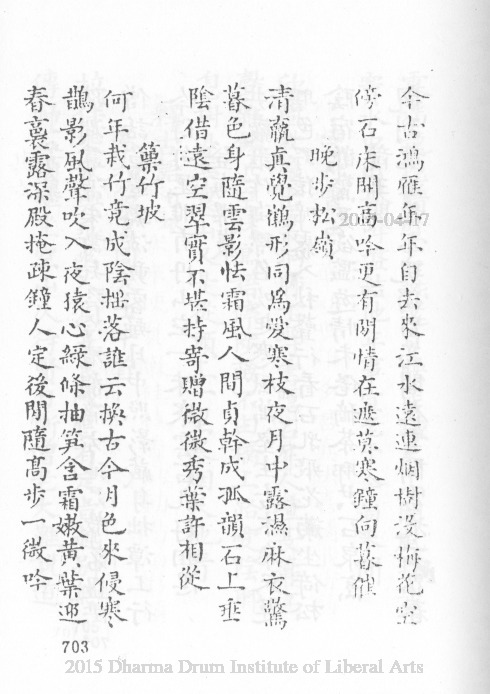 今古鴻雁年年自去來江水遠連烟樹沒梅花空
傍石床開高吟更有閒情在遮莫寒鐘向暮催
晚步松嶺
清羸真覺鶴形同為愛寒枝夜月中露濕麻衣驚
暮色身隨雲影怯霜風人間貞幹成孤韻石上垂
陰借遠空翠實不堪持寄贈微微秀葉許相從
篥竹坡
何年栽竹竟成陰拙落誰云換古今月色來侵寒
鵲影風聲吹入夜猿心綠條抽筍含霜嫩黃葉迎
春裛露深殿掩疎鐘人定後閒隨高步一微吟
703
2015 Dharma Drum Institute of Liberal Arts